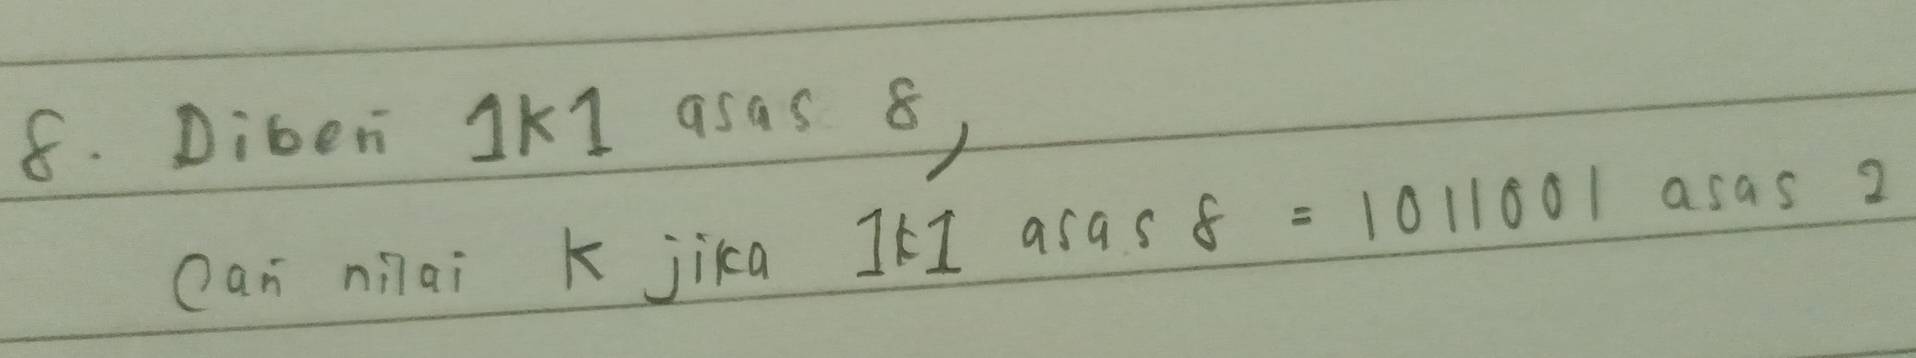 8. Diberi 1K1 asas 8,
Cari nilai K jika 1k1 asas 8 = 1011001 asas 2